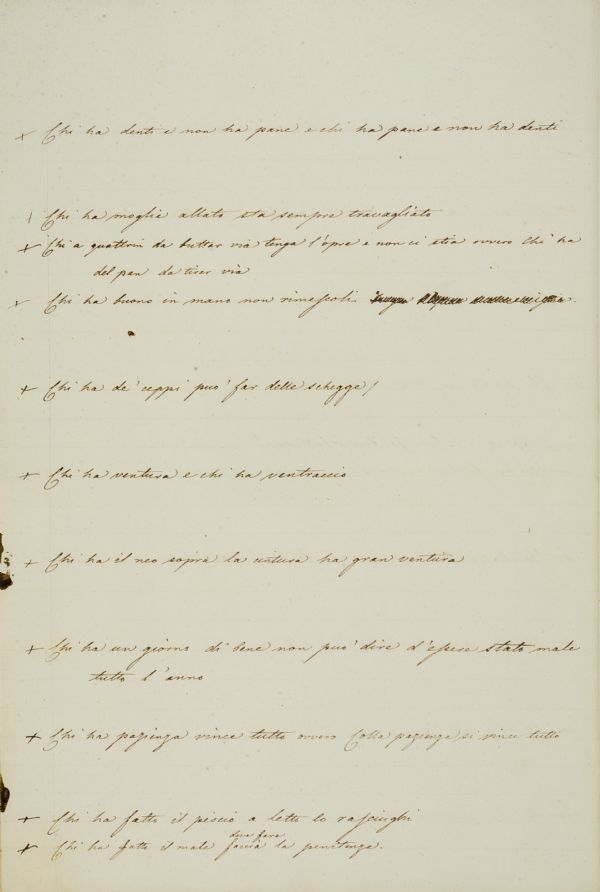 x Chi ha denti e non ha pane e chi ha pane e non ha denti
+ Chi ha moglie allato sta sempre travagliato
+ Chi a quattrin da buttar via tenga l'opre e non ci stia ovvero Chi ha
del pan da tirar via
x Chi ha buono in mano non rimescoli
+ Chi ha de' ceppi puo' far delle schegge /
+ Chi ha ventura e chi ha ventraccio
+ Chi ha il neo sopra la cintura ha gran ventura
+ Chi ha un giorno di bene non puo' dire d'essere stato male
tutto l'anno
+ Chi ha pazienza vince tutto ovvero Colla pazienza si vince tutto
+ Chi ha fatto il piscio a letto lo rasciughi
deve fare
+ Chi ha fatto il male faccia la penitenza.